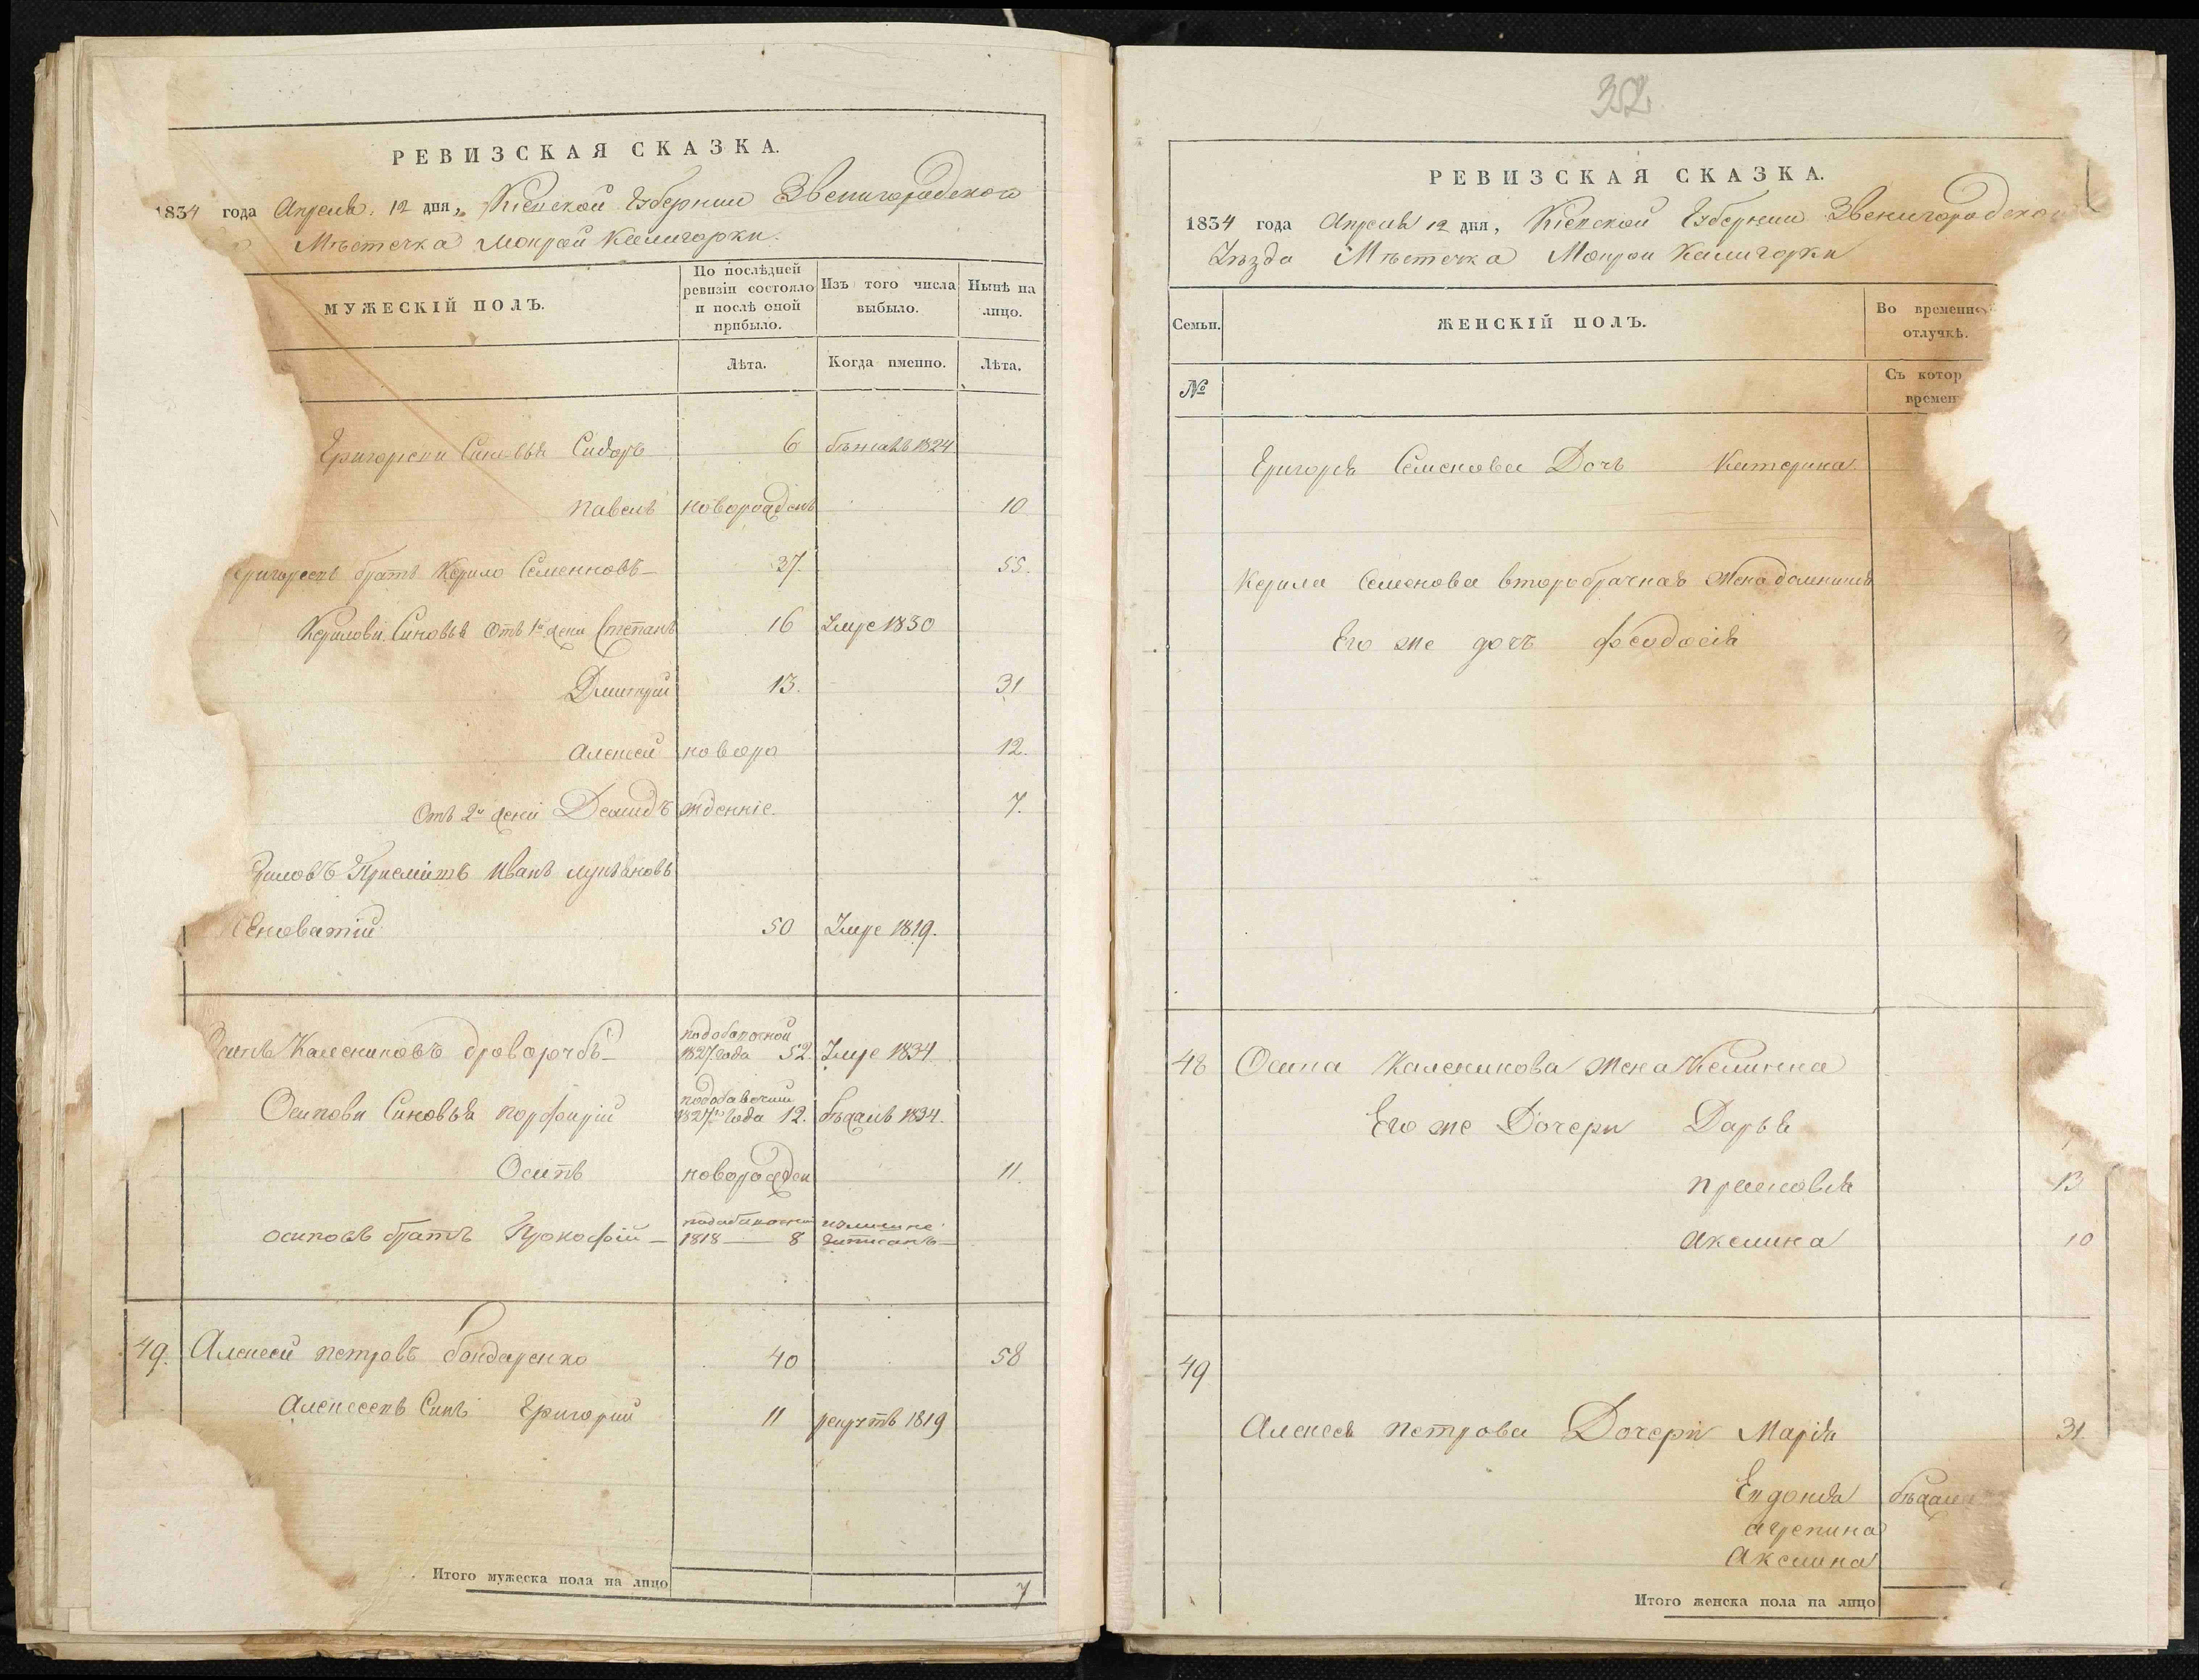 РЕВИЗСКАЯ СКАЗКА.
1834 года Апреля 12 дня, Кіевской Губерніи Звенигородского
Мѣстечка Мокрой Калигорки.
МУЖЕСКІЙ ПОЛЪ.
По послѣдней ревизіи состояло и послѣ оной прибыло.
Изъ того числа выбыло.
Нынѣ на лицо.
Лѣта.
Когда именно.
Лѣта.
Григорієви Синовья Сидоръ 6 бѣжалъ 1824
Павелъ новорожденъ 10
Григориевъ братъ Кирило Семеновъ 37. 55.
Кирилови Синовья Отъ 1й жени Степанъ 16 Умре 1830
Дмитрій 13. 31
Алексей новоро 12.
Отъ 2й жени Демидъ жденніе. 7.
Приемишъ Иванъ
50 Умре 1819.
Калениковъ 1827 года 52 Умре 1834
Осипови Синовья Порфирій 1827го года 12. бѣжалъ 1834.
Осипъ новорожден 11.
Осиповъ братъ Прокофій 1818 8
49. Алексей Петровъ Бондаренко 40 58
Алексеевъ Синъ Григорий 11 рекрутъ 1819
Итого мужеска пола на лицо 7
352
РЕВИЗСКАЯ СКАЗКА.
1834 года Апреля 12 дня, Кіевской Губерніи Звенигородско
Уѣзда Мѣстечка Мокрой Калигорки
Семьи.
ЖЕНСКІЙ ПОЛЪ.
Во временно
отлучкѣ.
№
Съ котор
времен
Григорія Семенова Дочь Катерина
Кирила Семенова второбрачная Жена
Его же дочъ Феодосія
48 Осипа Каленикова Жена
Его же Дочери Дарья
Прасковья 13
Аксиниа 10
49
Алексея Петрова Дочери Марія 31.
Евдокія бѣжал
Агрепина
Аксиниа
Итого женска пола на лицо